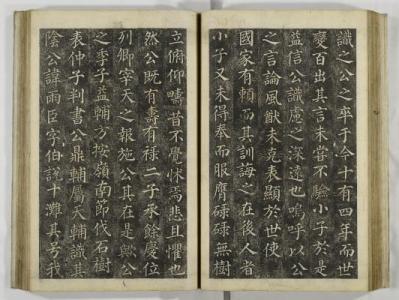 識之公之卒于今十有四年而世
變百出其言未嘗不驗小子於是
益信公識慮之深遠也嗚呼以公
之言論風猷未克表顯於世使
國家有賴而其訓誨之在後人者
小子又未得奉而服膺碌碌無樹
立俯仰疇昔不覺怵焉悲且懼也
然公既有壽有祿二子承餘慶位
列卿宰天之報施公其在是歟公
之季子益輔方按嶺南節伐石樹
表仲子判書公鼎輔屬大輔識其
陰公諱雨臣字伯說十灘其號我